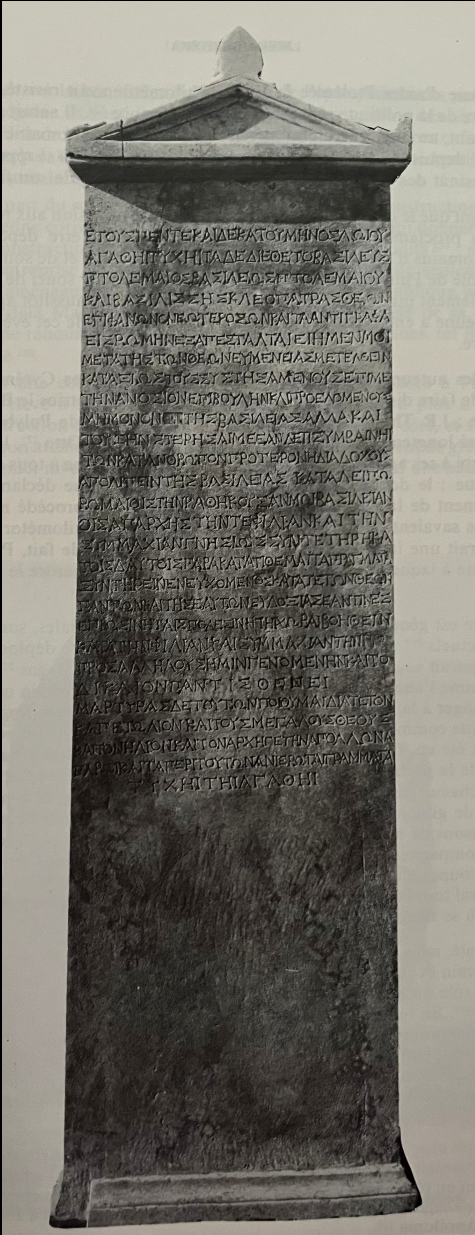 ΕΤΟΥΣΠΕΝΤΕΚΑΙΔΕΚΑΤΟΥΜΗΝΟΣΛΩΙΟΥ
ΑΓΑΘΗΙΤΥΧΗΙΤΑΔΕΔΙΕΘΕΤΟΒΑΣΙΛΕΥΣ
ΠΤΟΛΕΜΑΙΟΣΒΑΣΙΛΕΩΣΠΤΟΛΕΜΑΙΟΥ
ΚΑΙΒΑΣΙΛΙΣΣΗΣΚΛΕΟΠΑΤΡΑΣΘΕΩΝ
ΕΠΙΦΑΝΩΝΟΝΕΩΤΕΡΟΣΩΝΚΑΙΤΑΑΝΤΙΓΡΑΦΑ
ΕΙΣΡΩΜΗΝΕΞΑΠΕΣΤΑΛΤΑΙΕΙΗΜΕΝΜΟΙ
ΜΕΤΑΤΗΣΤΩΝΘΕΩΝΕΥΜΕΝΕΙΑΣΜΕΤΕΛΘΕΙΝ
ΚΑΤΑΞΙΩΣΤΟΥΣΣΥΣΤΗΣΑΜΕΝΟΥΣΕΠΙΜΕ
ΤΗΝΑΝΟΣΙΟΝΕΠΙΒΟΥΛΗΝΚΑΙΠΡΟΕΛΟΜΕΝΟΥΣ
ΜΗΜΟΝΟΝΤΗΣΒΑΣΙΛΕΙΑΣΑΛΛΑΚΑΙ
ΤΟΥΖΗΝΣΤΕΡΗΣΑΙΜΕΕΑΝΔΕΤΙΣΥΜΒΑΙΝΗΙ
ΤΩΝΚΑΤΑΝΘΡΩΠΟΝΠΡΟΤΕΡΟΝΗΔΙΑΔΟΧΟΥΣ
ΑΠΟΛΙΠΕΙΝΤΗΣΒΑΣΙΛΕΙΑΣ ΚΑΤΑΛΕΙΠΩ
ΡΩΜΑΙΟΙΣΤΗΝΚΑΘΗΚΟΥΣΑΝΜΟΙΒΑΣΙΛΕΙΑΝ
ΟΙΣΑΠΑΡΧΗΣΤΗΝΤΕΦΙΛΙΑΝΚΑΙΤΗΝ
ΣΥΜΜΑΧΙΑΝΓΝΗΣΙΩΣΣΥΝΤΕΤΗΡΗΚΑ
ΤΟΙΣΔΑΥΤΟΙΣΠΑΡΑΚΑΤΑΤΙΘΕΜΑΙΤΑΠΡΑΓΜΑΤΑ
ΣΥΝΤΗΡΕΙΝΕΝΕΥΧΟΜΕΝΟΣΚΑΤΑΤΕΤΩΝΘΕΩΝ
ΠΑΝΤΩΝΚΑΙΤΗΣΕΑΥΤΩΝΕΥΔΟΞΙΑΣΕΑΝΤΙΝΕΣ
ΕΠΙΩΣΙΝΗΤΑΙΣΠΟΛΕΣΙΝΗΤΗΙΧΩΡΑΙΒΟΗΘΕΙΝ
ΚΑΤΑΤΗΝΦΙΛΙΑΝΚΑΙΣΥΜΜΑΧΙΑΝΤΗΝ
ΠΡΟΣΑΛΛΗΛΟΥΣΗΜΙΝΓΕΝΟΜΕΝΗΝΚΑΙΤΟ
ΔΙΚΑΙΟΝΠΑΝΤΙΣΘΕΝΕΙ
ΜΑΡΤΥΡΑΣΔΕΤΟΥΤΩΝΠΟΙΟΥΜΑΙΔΙΑΤΕΤΟΝ
ΚΑΠΕΤΩΛΙΟΝΚΑΙΤΟΥΣΜΕΓΑΛΟΥΣΘΕΟΥΣ
ΚΑΙΤΟΝΗΛΙΟΝΚΑΙΤΟΝΑΡΧΗΓΕΤΗΝΑΠΟΛΛΩΝΑ
ΠΑΡΩΙΚΑΙΤΑΠΕΡΙΤΟΥΤΩΝΑΝΙΕΡΩΤΑΙΓΡΑΜΜΑΤΑ
ΤΥΧΗΙΤΗΙΑΓΑΘΗΙ